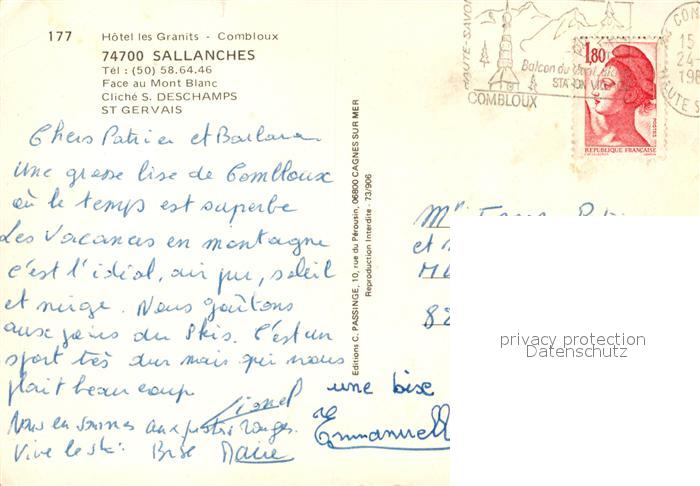 177 Hôtel les Granits - Combloux
74700 SALLANCHES
Tél : (50) 58.64.46
Face au Mont Blanc
Cliché S. DESCHAMPS
ST GERVAIS
Chers Patrice et Barbara
Une grosse bise de Combloux
où le temps est superbe
Les Vacances en montagne
c'est l'idéal, air pur, soleil
et neige. Nous goûtons
aux joies du Skis. C'est un
sport très dur mais qui nous
plait beaucoup
Lionel
Nous en sommes aux pistes rouges.
Vive le ski Bise Marie
une bise
Emmanuell
Editions C. PASSINGE, 10, rue du Pérousin, 06800 CAGNES SUR MER
Reproduction Interdite - 73/906
HAUTE-SAVOI
Balcon du Mont
STA ON
COMBLOUX
COM
15
24-
198
HAUTE S
1,80
POSTES
REPUBLIQUE FRANÇAISE
Mr
et
82
privacy protection
Datenschutz